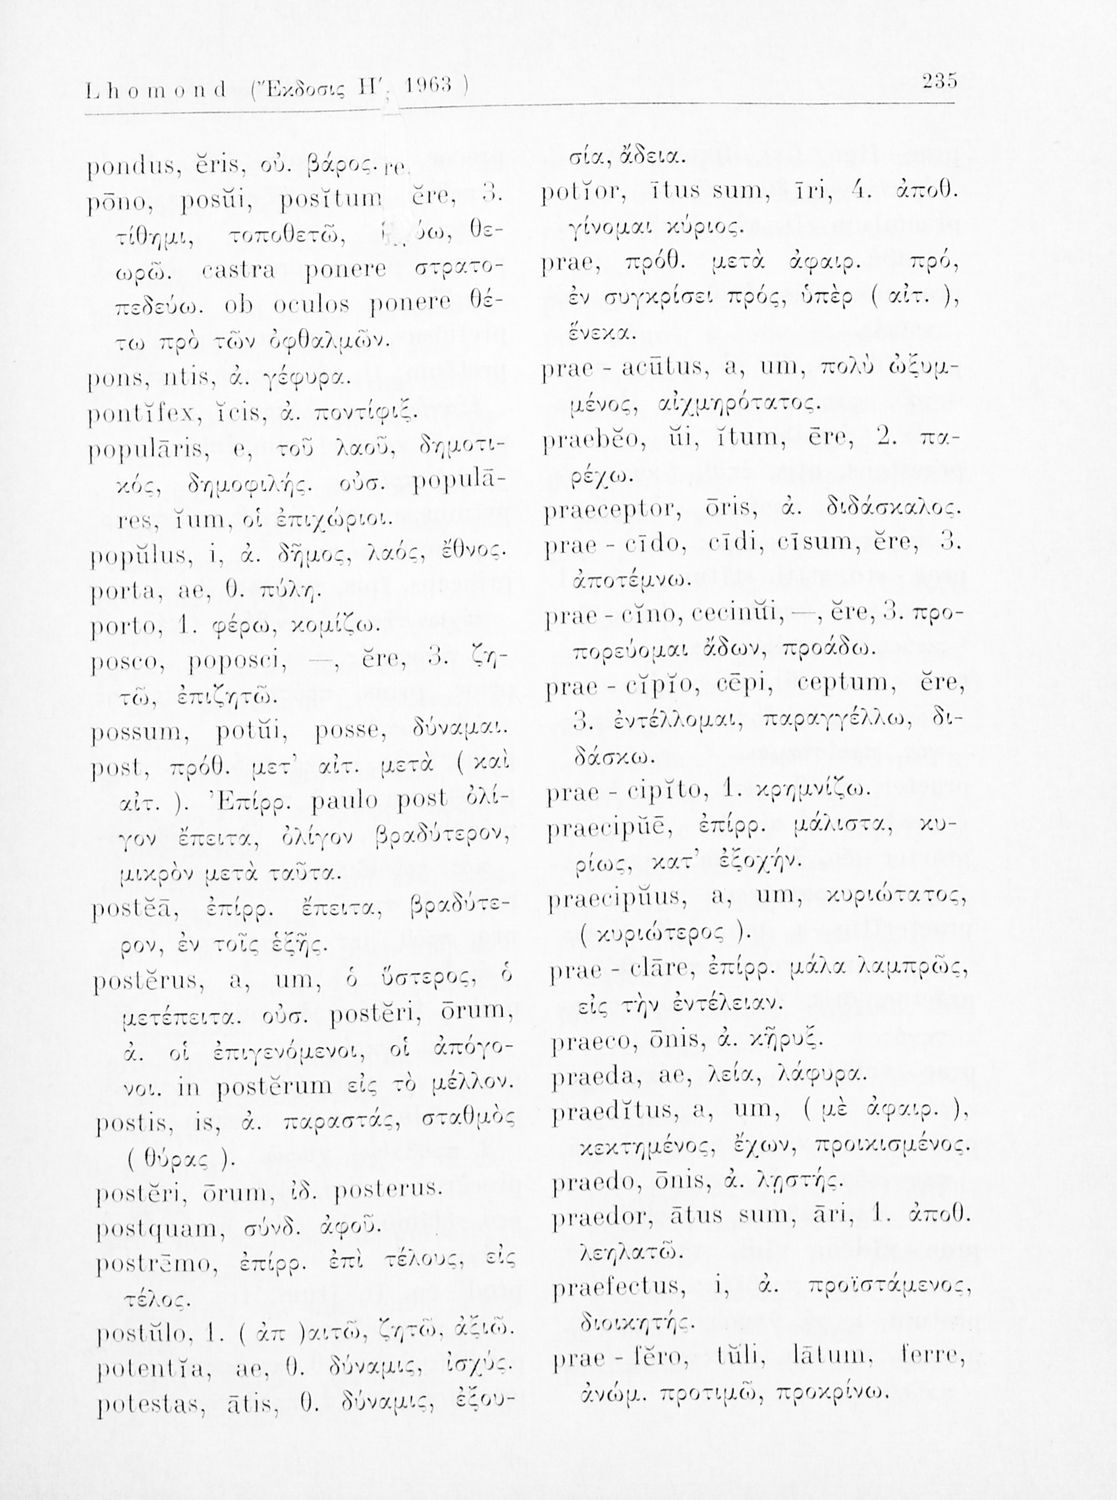 Lhomond (Ἔκδοσις Η΄, 1963)
235
pondus, ĕris, οὐ. βάρος.
pōno, posŭi, posĭtum ĕre, 3.
τίθημι, τοποθετῶ, θε-
ωρῶ. castra ponere στρατο-
πεδεύω. ob oculos ponere θέ-
τω πρὸ τῶν ὀφθαλμῶν.
pons, ntis, ἀ. γέφυρα.
pontĭfex, ĭcis, ἀ. ποντίφιξ.
populāris, e, τοῦ λαοῦ, δημοτι-
κός, δημοφιλής. οὐσ. populā-
res, ĭum, οἱ ἐπιχώριοι.
popŭlus, i, ἀ. δῆμος, λαός, ἔθνος.
porta, ae, θ. πύλη.
porto, 1. φέρω, κομίζω.
posco, poposci, —, ĕre, 3. ζη-
τῶ, ἐπιζητῶ.
possum, potŭi, posse, δύναμαι.
post, πρόθ. μετ’ αἰτ. μετὰ ( καὶ
αἰτ. ). Ἐπίρρ. paulo post ὀλί-
γον ἔπειτα, ὀλίγον βραδύτερον,
μικρὸν μετὰ ταῦτα.
postĕā, ἐπίρρ. ἔπειτα, βραδύτε-
ρον, ἐν τοῖς ἑξῆς.
postĕrus, a, um, ὁ ὕστερος, ὁ
μετέπειτα. οὐσ. postĕri, ōrum,
ἀ. οἱ ἐπιγενόμενοι, οἱ ἀπόγο-
νοι. in postĕrum εἰς τὸ μέλλον.
postis, is, ἀ. παραστάς, σταθμὸς
( θύρας ).
postĕri, ōrum, ἰδ. posterus.
postquam, σύνδ. ἀφοῦ.
postrēmo, ἐπίρρ. ἐπὶ τέλους, εἰς
τέλος.
postŭlo, 1. ( ἀπ )αιτῶ, ζητῶ, ἀξιῶ.
potentĭa, ae, θ. δύναμις, ἰσχύς.
potestas, ātis, θ. δύναμις, ἐξου-
σία, ἄδεια.
potĭor, ītus sum, īri, 4. ἀποθ.
γίνομαι κύριος.
prae, πρόθ. μετὰ ἀφαιρ. πρό,
ἐν συγκρίσει πρός, ὑπὲρ ( αἰτ. ),
ἕνεκα.
prae - acūtus, a, um, πολὺ ὠξυμ-
μένος, αἰχμηρότατος.
praebĕo, ŭi, ĭtum, ēre, 2. πα-
ρέχω.
praeceptor, ōris, ἀ. διδάσκαλος.
prae - cīdo, cīdi, cīsum, ĕre, 3.
ἀποτέμνω.
prae - cĭno, cecinŭi, —, ĕre, 3. προ-
πορεύομαι ᾄδων, προάδω.
prae - cĭpĭo, cēpi, ceptum, ĕre,
3. ἐντέλλομαι, παραγγέλλω, δι-
δάσκω.
prae - cipĭto, 1. κρημνίζω.
praecipŭē, ἐπίρρ. μάλιστα, κυ-
ρίως, κατ’ ἐξοχήν.
praecipŭus, a, um, κυριώτατος,
( κυριώτερος ).
prae - clāre, ἐπίρρ. μάλα λαμπρῶς,
εἰς τὴν ἐντέλειαν.
praeco, ōnis, ἀ. κῆρυξ.
praeda, ae, λεία, λάφυρα.
praedĭtus, a, um, ( μὲ ἀφαιρ. ),
κεκτημένος, ἔχων, προικισμένος.
praedo, ōnis, ἀ. λῃστής.
praedor, ātus sum, āri, 1. ἀποθ.
λεηλατῶ.
praefectus, i, ἀ. προϊστάμενος,
διοικητής.
prae - fĕro, tŭli, lātum, ferre,
ἀνώμ. προτιμῶ, προκρίνω.